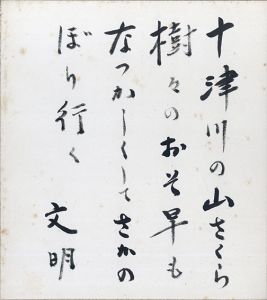 十津川の山さくら
樹々のおそ早も
なつかしくしてさかの
ぼり行く
文明